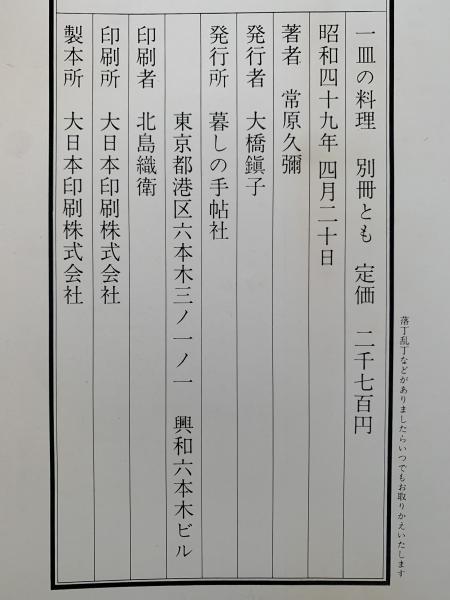 一皿の料理　別冊とも　定価　二千七百円
昭和四十九年 四月二十日
著者　常原久彌
発行者　大橋鎭子
発行所　暮しの手帖社
東京都港区六本木三ノ一ノ一　興和六本木ビル
印刷者　北島織衛
印刷所　大日本印刷株式会社
製本所　大日本印刷株式会社
落丁乱丁などがありましたらいつでもお取りかえいたします